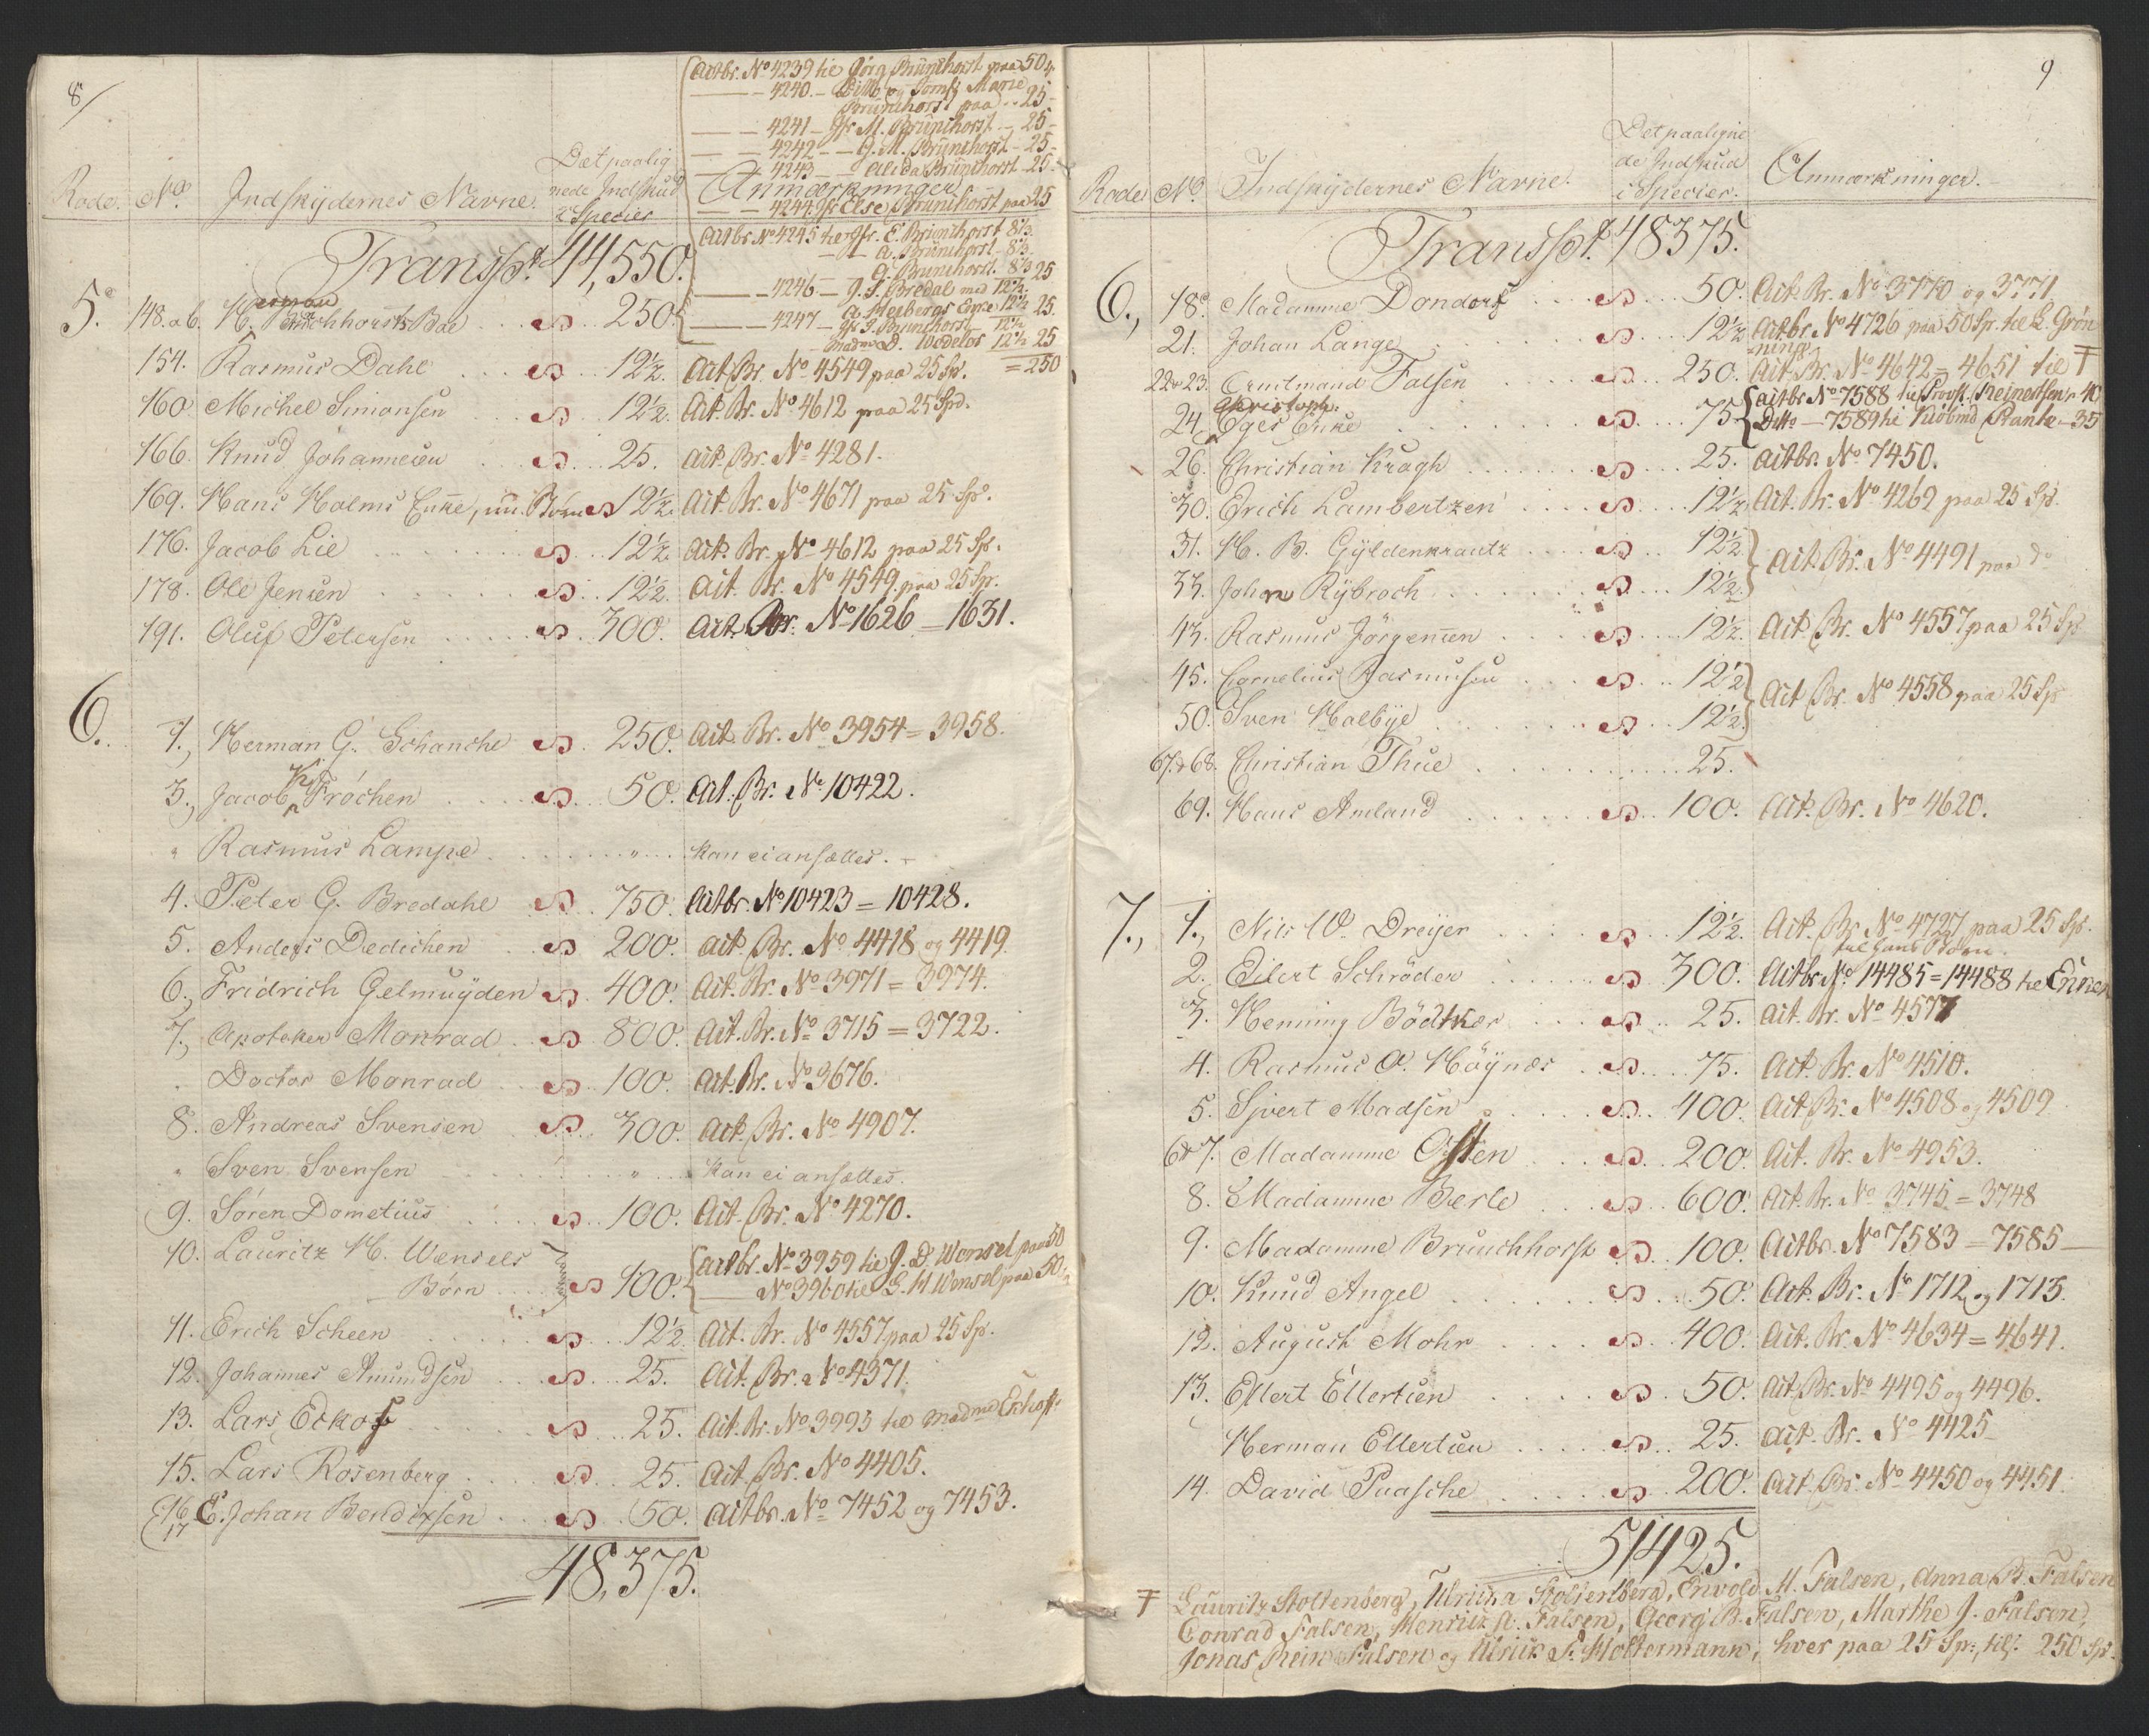 8/
Actbr. No 4239 til Jørg Brünchorst paa 50
— — 4240 — Ditto og Jomfr Marie
Brünchorst paa 25
— — 4241 — Jfr M. Brünchorst — 25 —
— — 4242 — — J. M. Brünchorst — 25 —
— — 4243 — Alida Brünchorst — 25 —
Rode. No. Indskydernes Navne. Det paalig
nede Indskud
i Species Anmærkninger
— — 4244 Jfr Else Brünchorst paa 25
Actbr No 4245 til Jfr. E. Brünchorst 8⅓
— — A. Brünchorst — 8⅓
— G. Brünchorst. 8⅓ 25
Transpt. 44,550.
— — 4246 — J. S. Bredal med 12½
A. Heibergs Enke 12½ 25
— — 4247 — Jfr J. Brünchorst — 12½
Madme D. Wedelos 12½ 25
= 250
5. 148. ab. H. Bruchhorsts Boe 250.
154. Rasmus Dahl 12½. Act. Br. No 4549 paa 25 Sp.
160 Michel Simonsen 12½. Act. Br. No 4612 paa 25 Spd.
166. Knud Johannesen 25. Act. Br. No 4281.
169. Hans Holms Enke, nu Børn 12½. Act. Br. No 4671 paa 25 Sp.
176. Jacob Lie 12½. Act. Br. No 4612 paa 25 Sp.
178. Ole Jensen 12½. Act. Br. No 4549 paa 25 Sp.
191. Oluf Petersen 300. Act. Br. No 1626 = 1631.
6. 1., Herman G. Schanche 250. Act. Br. No 3954 = 3958.
3., Jacob Ki Fröchen 50. Act. Br. No 10422.
" Rasmus Lampe " Kan ei ansættes.
4. Peter G. Bredahl 750. Actbr. No 10423 = 10428.
5. Anders Dedichen 200. Act. Br. No 4418 og 4419.
6., Fridrich Gelmuyden 400. Act. Br. No 3971 = 3974.
7., Apoteker Monrad 800. Act. Br. No 3715 = 3722.
. Doctor Monrad 100. Act. Br. No 3676.
8. Andreas Svensen 300. Act. Br. No 4907.
" Sven Svensen " Kan ei ansættes.
9. Søren Dometius 100. Act. Br. No 4270.
10. Lauritz H. Wensels
Børn 100. Actbr. No 3959 til J. D. Wensel paa 50
— No 3960 til G. H. Wensel paa 50
11. Erich Scheen 12½ Act. Br. No 4557 paa 25 Sp.
12. Johannes Amundsen 25. Act. Br. No 4371.
13. Lars Eckoff 25. Act. Br. No 3993 til Madme Eckhoff
15. Lars Rosenberg 25. Act. Br. No 4405.
16
17 E. Johan Bendixsen 50. Actbr. No 7452 og 7453.
48,375.
9
Rode No. Indskydernes Navne. Det paaligne
de Indskud
i Species. Anmærkninger.
Transpt. 48375.
6., 18. Madamme Dondorf 50. Act. Br. No 3770 og 3771
21. Johan Lange 12½ Actbr. No 4726 paa 50 Sp. til L. Grøn
ning
22 & 23. Amtmand Falsen 250. Act. Br. No 4642 = 4651 til Ŧ
24. Christoph. Eges Enke 75 Actbr. No 7588 til Provst Reinertsen 40
Ditto — 7589 til Kiöbmd Prante — 35
26. Christian Kragh 25. Actbr. No 7450.
30. Erich Lambertzen 12½ Act. Br. No 4269 paa 25 Sp.
31. H. B. Gyldenkrantz 12½ Act. Br. No 4491 paa do
33. Johan Rybroch 12½
43. Rasmus Jörgensen 12½. Act. Br. No 4557 paa 25 Sp
45. Cornelius Rasmussen 12½ Act. Br. No 4558 paa 25 Sp
50. Sven Halbye 12½
67 & 68. Christian Thue 25.
69. Hans Amland 100. Act. Br. No 4620.
7., 1., Nils W. Dreyer 12½. Act. Br. No 4727 paa 25 Sp.
til hans Børn.
2. Eilert Schröder 300. Actbr. No 14485 = 14488 til Enken
3. Henning Bödtker 25. Act. Br. No 4577
4. Rasmus O. Höynes 75. Act. Br. No 4510.
5. Sivert Madsen 400. Act. Br. No 4508 og 4509
6 & 7. Madamme Often 200. Act. Br. No 4953.
8. Madamme Berle 600. Act. Br. No 3745 = 3748
9. Madamme Bruuchhorst 100. Actbr. No 7583 = 7585 —
10. Knud Angel 50. Act. Br. No 1712 og 1713.
12. August Mohr 400. Act. Br. No 4634 = 4641.
13. Ellert Ellertsen 50. Act. Br. No 4495 og 4496.
Herman Ellertsen 25. Act. Br. No 4425
14. David Paasche 200. Act. Br. No 4450 og 4451.
51425.
Ŧ Lauritz Stoltenberg, Ulricha Stoltenberg, Envold M. Falsen, Anna B. Falsen
Conrad Falsen, Henrich A. Falsen, Georg B. Falsen, Marthe J. Falsen,
Jonas Rein Falsen og Ulrich F. Holtermann, hver paa 25 Sp., tils. 250 Sp.